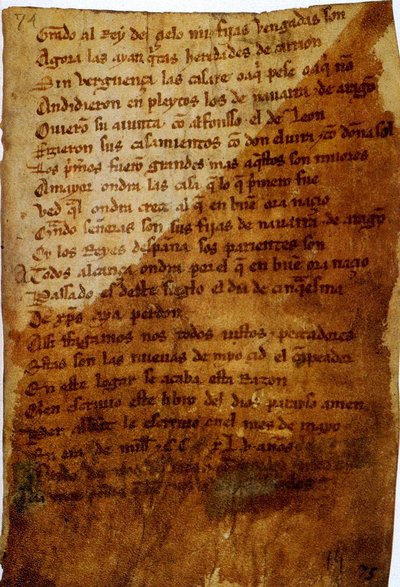 74
Grado al Rey del çielo mis fijas vengadas son
Agora las ayan q̃tas heredades de carrion
Sin verguença las casare o aq̃ pese o aq̃ nõ
Andidieron en pleytos los de nauarra ⁊ de aragõ
Ouieron su aiunta cõ alfonsso el de Leon
Fizieron sus casamientos cõ don eluira ⁊ cõ doña sol
Los p̃meros fuerõ grandes mas aq̃stos son miiores
A mayor ondra las casa q̃ lo q̃ p̃mero fue
Ved q̃l ondra creçe al q̃ en buẽ ora naçio
Quãdo señoras son sus fijas de nauarra ⁊ de aragõ
Oy los Reyes despaña sos parientes son
A Todos alcança ondra por el q̃ en buẽ ora naçio
Passado es deste sieglo el dia de cinq̃esma
De xp̃s aya perdon
Assi ffagamos nos todos iustos ⁊ peccadores
Estas son las nueuas de myo çid el canpeador
En este logar se acaba esta Razon
Quien escriuio este libro del dios parayso amen
Per abbat le escriuio enel mes de mayo
En era de mill ⁊ .C.C xL.v. años